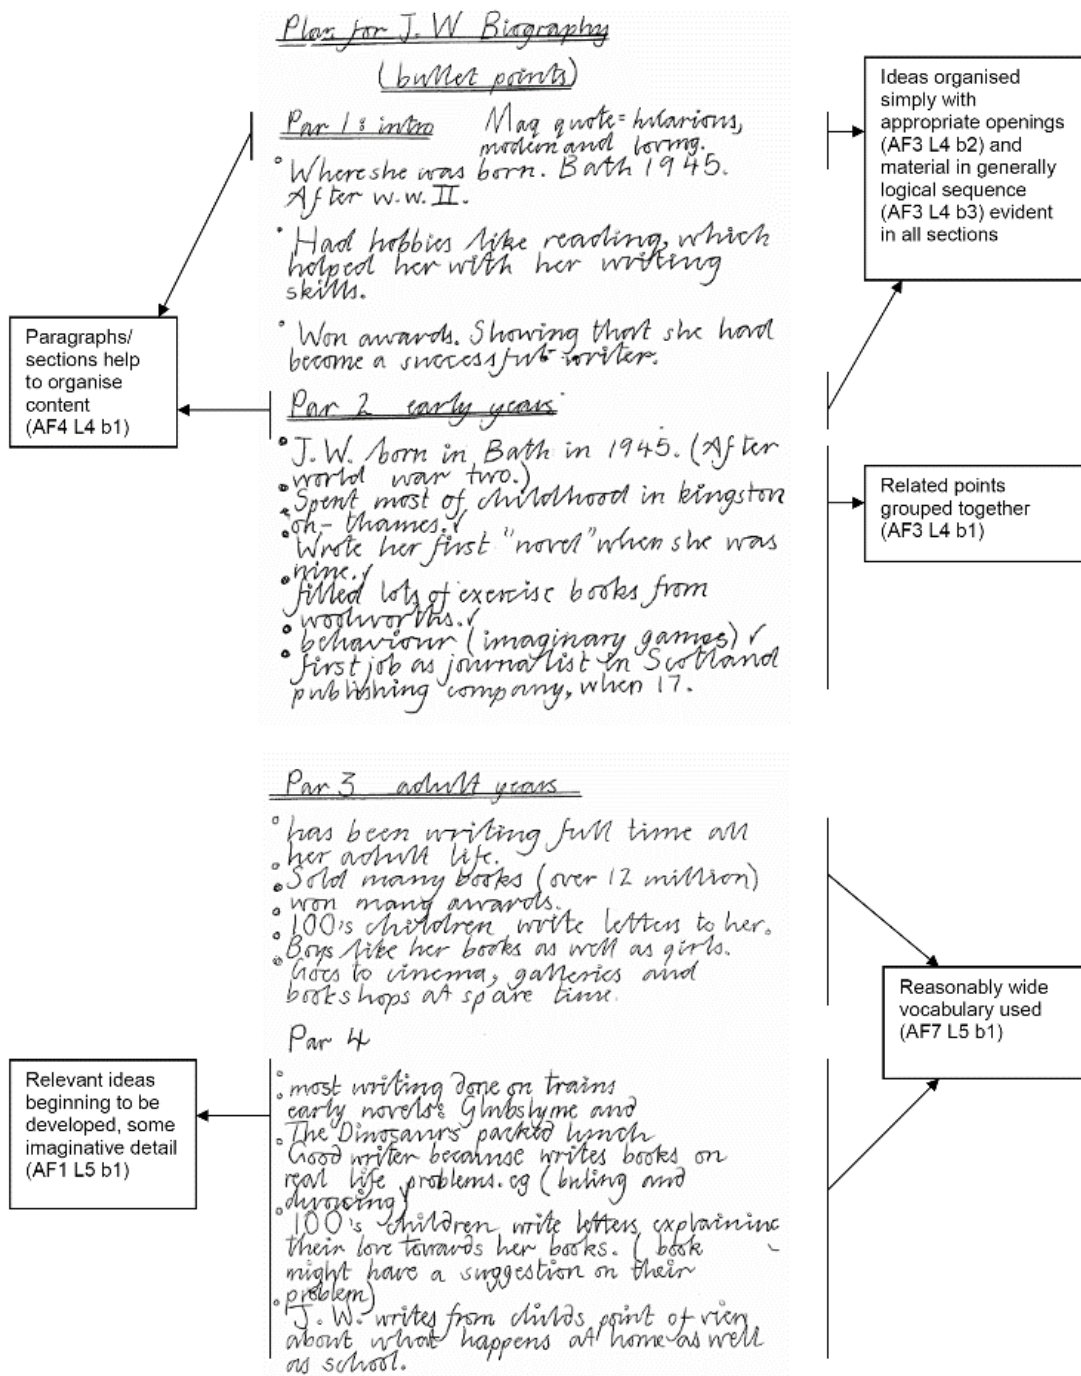 Plan for J.W Biography
(bullet points)
Par 1: intro
Mag quote = hilarious,
modern and loving.
° Where she was born. Bath 1945.
After w.w.II.
° Had hobbies like reading, which
helped her with her writing
skills.
° Won awards. Showing that she had
become a successful writer.
Par 2 early years
• J.W. born in Bath in 1945. (After
world war two.)
• Spent most of childhood in kingston
on-thames.✓
• Wrote her first "novel" when she was
nine.✓
• filled lots of exercise books from
woolworths.✓
• behaviour (imaginary games) ✓
• first job as journalist in Scotland
publishing company, when 17.
Par 3 adult years
° has been writing full time all
her adult life.
° Sold many books (over 12 million)
° won many awards.
° 100's children write letters to her.
° Boys like her books as well as girls.
° Goes to cinema, galleries and
bookshops at spare time.
Par 4
° most writing done on trains
° early novels: Glubslyme and
The Dinosaurs packed lunch
° Good writer because writes books on
real life problems. eg (buling and
divorcing)
° 100's children write letters explaining
their love towards her books. ( book
might have a suggestion on their
problem)
° J.W. writes from childs point of view
about what happens at home as well
as school.
Paragraphs/
sections help
to organise
content
(AF4 L4 b1)
Relevant ideas
beginning to be
developed, some
imaginative detail
(AF1 L5 b1)
Ideas organised
simply with
appropriate openings
(AF3 L4 b2) and
material in generally
logical sequence
(AF3 L4 b3) evident
in all sections
Related points
grouped together
(AF3 L4 b1)
Reasonably wide
vocabulary used
(AF7 L5 b1)